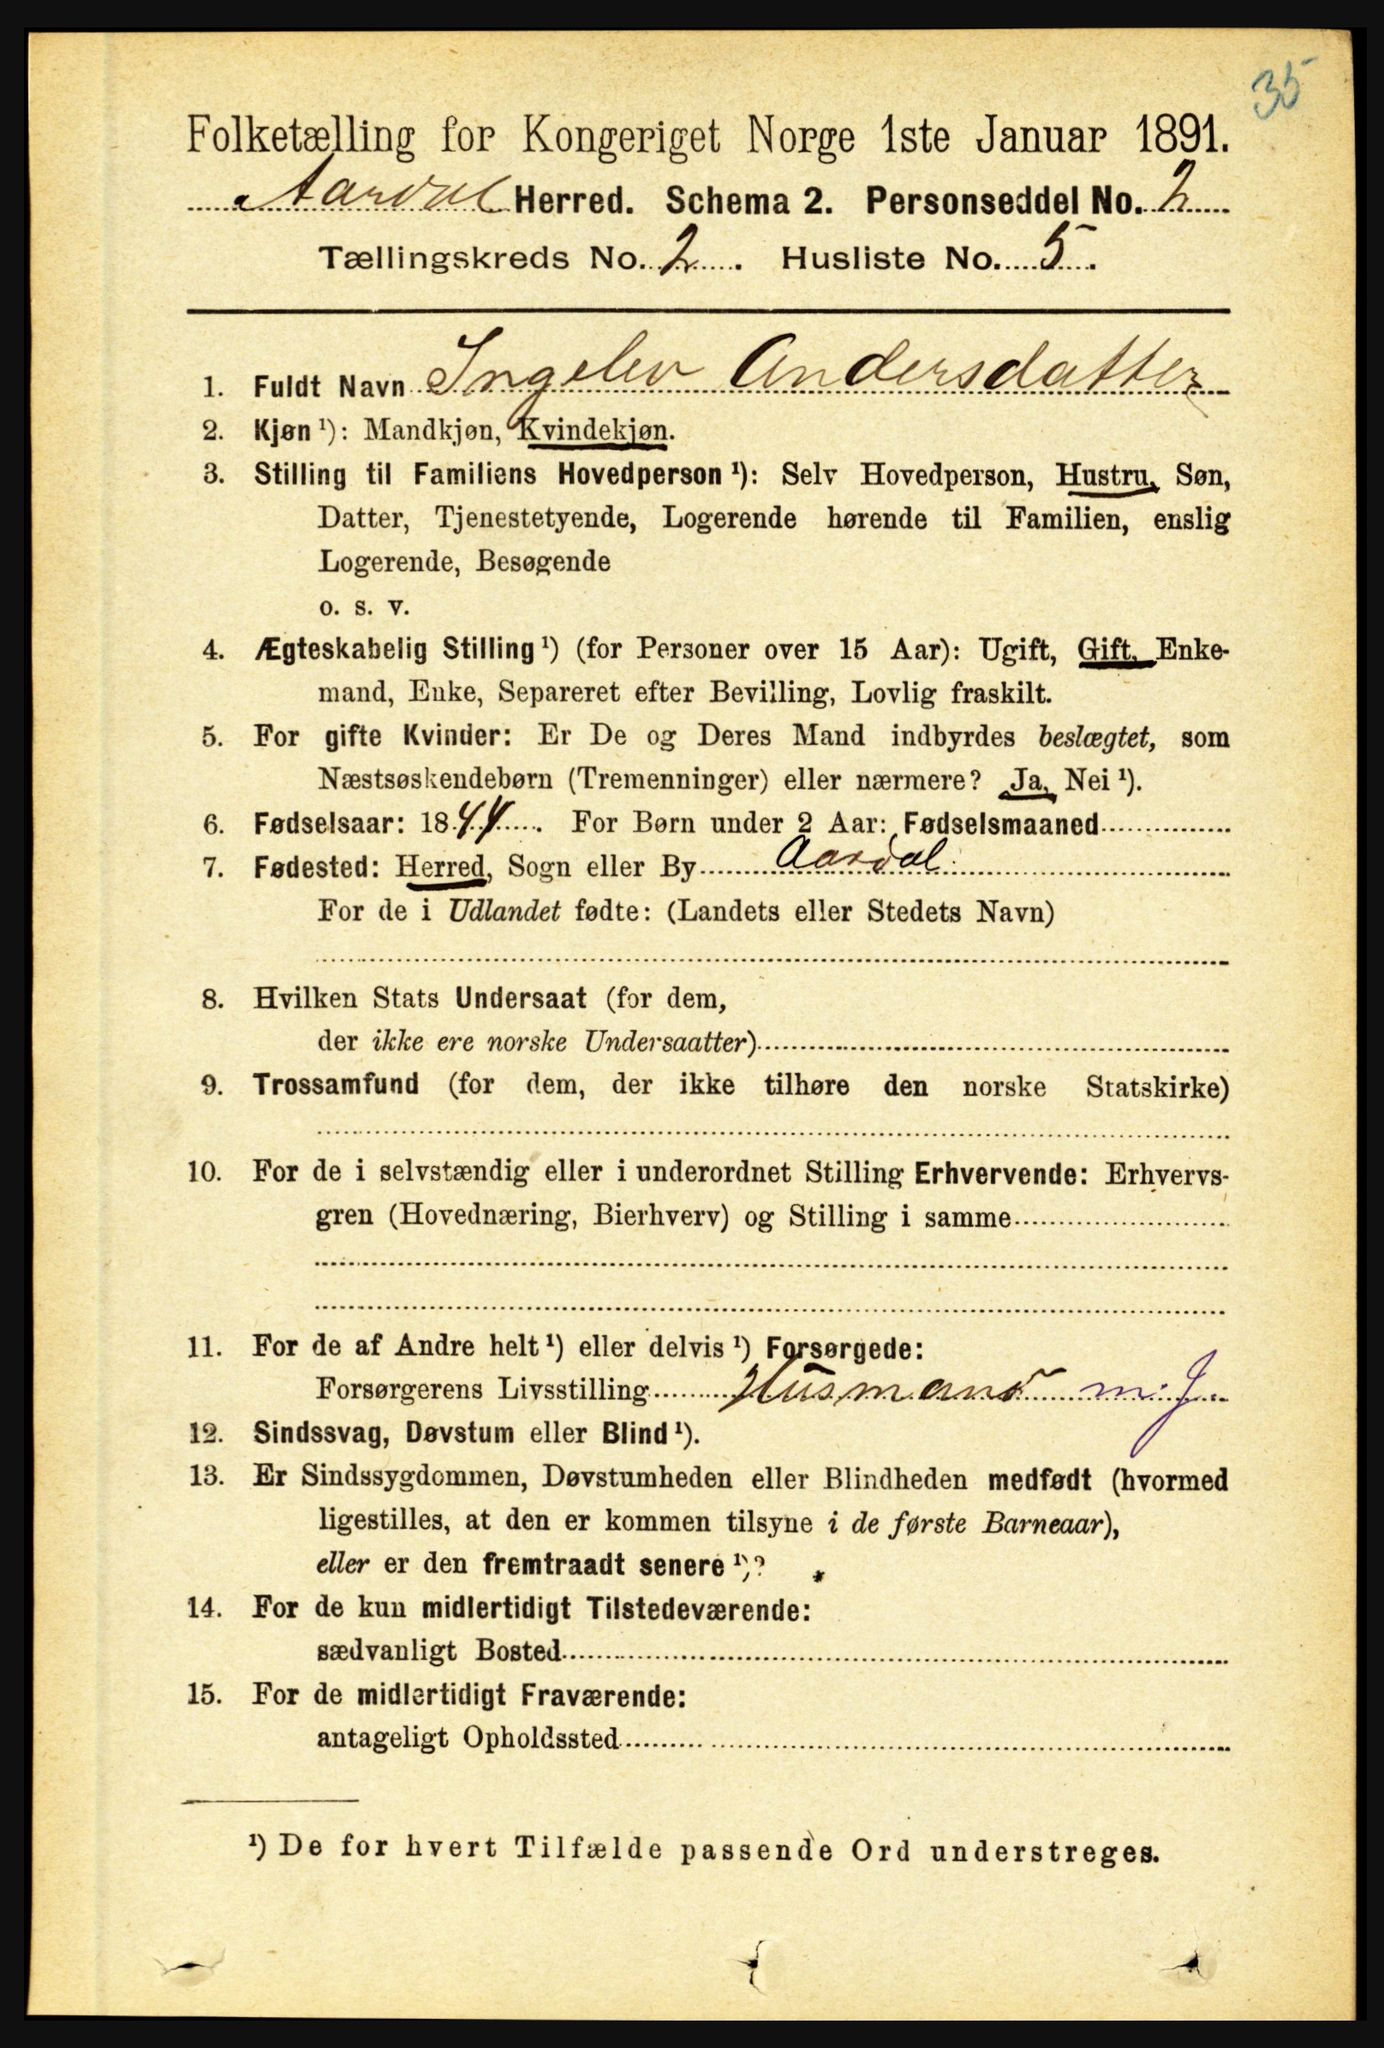 35
Folketælling for Kongeriget Norge 1ste Januar 1891.
Aardal Herred. Schema 2. Personseddel No. 2
Tællingskreds No. 2. Husliste No. 5.
1. Fuldt Navn Ingelev Andersdatter
2. Kjøn¹): Mandkjøn, Kvindekjøn.
3. Stilling til Familiens Hovedperson¹): Selv Hovedperson, Hustru, Søn,
Datter, Tjenestetyende, Logerende hørende til Familien, enslig
Logerende, Besøgende
o. s. v.
4. Ægteskabelig Stilling¹) (for Personer over 15 Aar): Ugift, Gift, Enke-
mand, Enke, Separeret efter Bevilling, Lovlig fraskilt.
5. For gifte Kvinder: Er De og Deres Mand indbyrdes beslægtet, som
Næstsøskendebørn (Tremenninger) eller nærmere? Ja, Nei¹).
6. Fødselsaar: 1844. For Børn under 2 Aar: Fødselsmaaned
7. Fødested: Herred, Sogn eller By Aardal
For de i Udlandet fødte: (Landets eller Stedets Navn)
8. Hvilken Stats Undersaat (for dem,
der ikke ere norske Undersaatter)
9. Trossamfund (for dem, der ikke tilhøre den norske Statskirke)
10. For de i selvstændig eller i underordnet Stilling Erhvervende: Erhvervs-
gren (Hovednæring, Bierhverv) og Stilling i samme
11. For de af Andre helt¹) eller delvis¹) Forsørgede:
Forsørgerens Livsstilling Husmand m. J.
12. Sindssvag, Døvstum eller Blind¹).
13. Er Sindssygdommen, Døvstumheden eller Blindheden medfødt (hvormed
ligestilles, at den er kommen tilsyne i de første Barneaar),
eller er den fremtraadt senere¹)?
14. For de kun midlertidigt Tilstedeværende:
sædvanligt Bosted
15. For de midlertidigt Fraværende:
antageligt Opholdssted
¹) De for hvert Tilfælde passende Ord understreges.